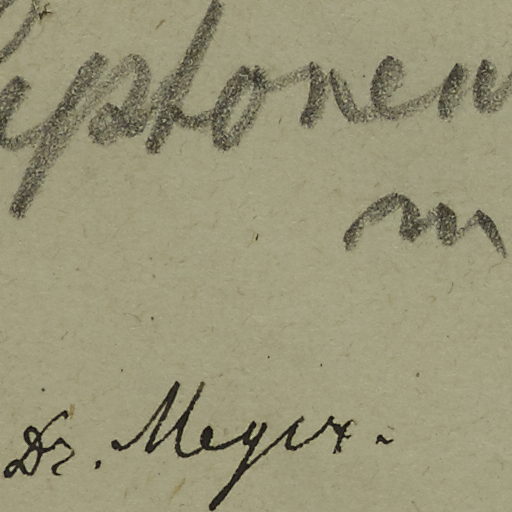 Leptonema
m
Dr. Meyer.